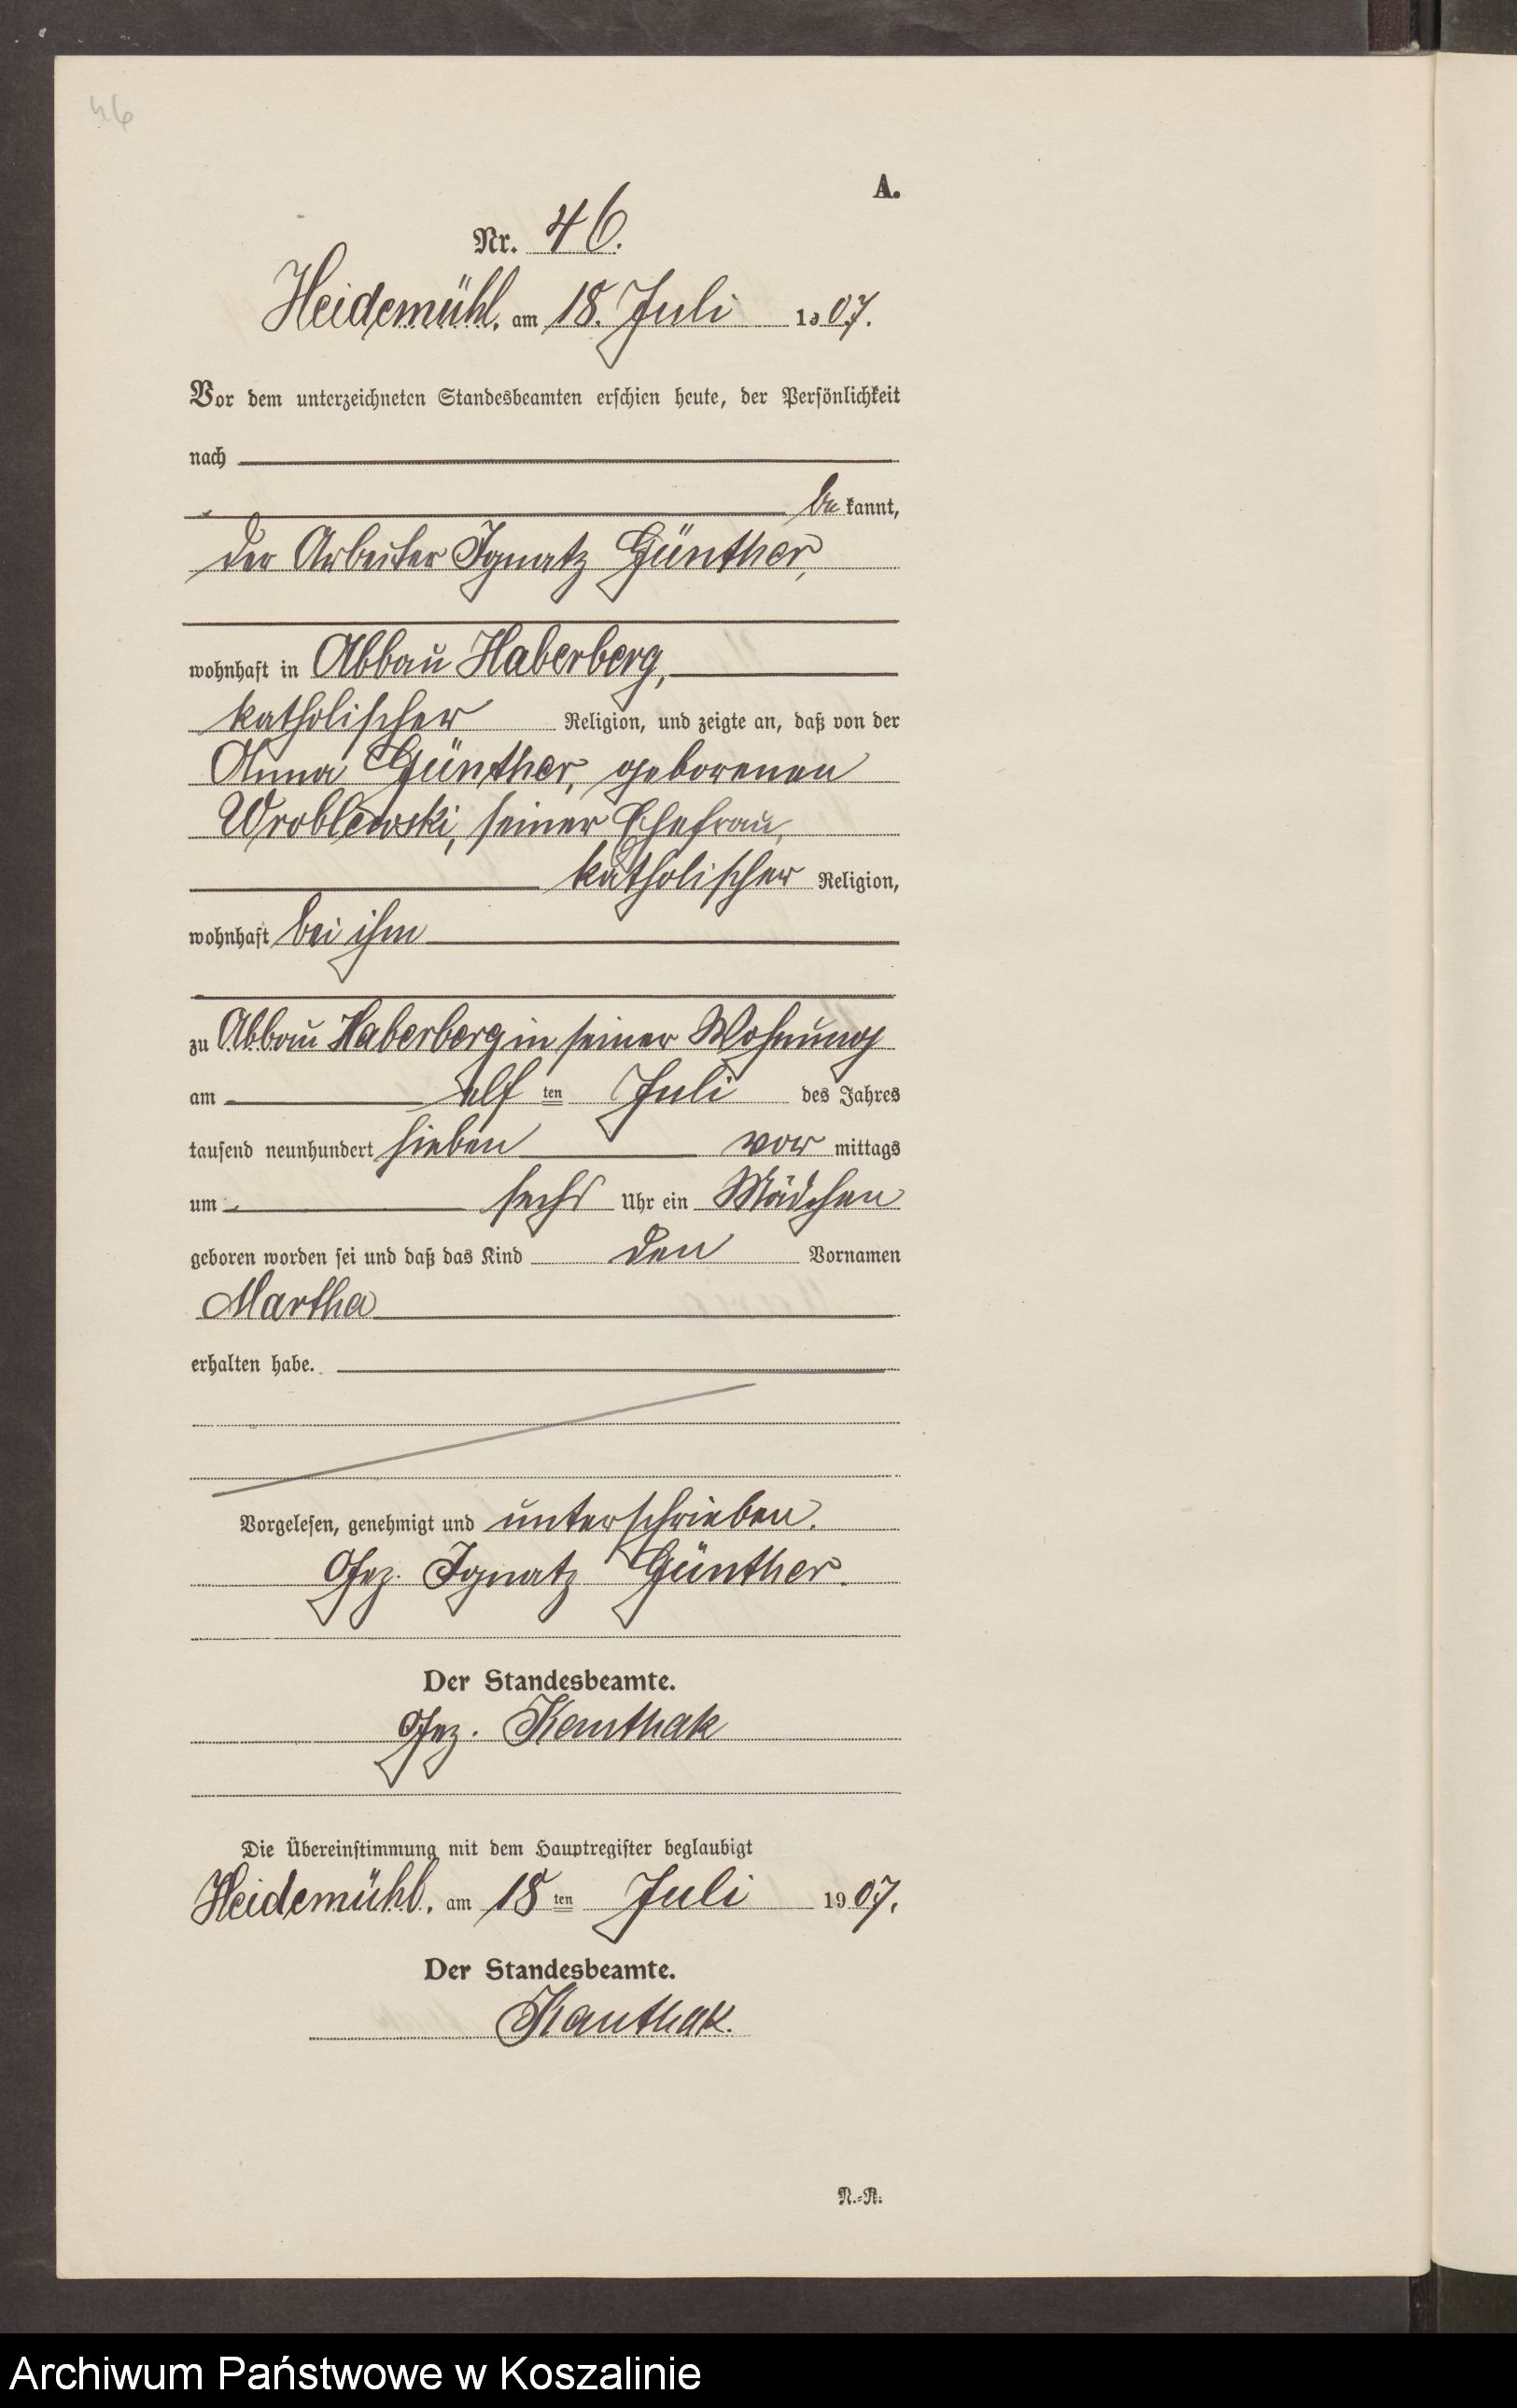 46
A.
Nr. 46.
Heidemühl, am 18. Juli 1907.
Vor dem unterzeichneten Standesbeamten erschien heute, der Persönlichkeit
nach
be kannt,
der Arbeiter Ignatz Günther,
wohnhaft in Abbau Haberberg,
katholischer Religion, und zeigte an, daß von der
Anna Günther, geborenen
Wroblewski, seiner Ehefrau,
katholischer Religion,
wohnhaft bei ihm
zu Abbau Haberberg in seiner Wohnung
am elf ten Juli des Jahres
tausend neunhundert sieben vor mittags
um sechs Uhr ein Mädchen
geboren worden sei und daß das Kind den Vornamen
Martha
erhalten habe.
Vorgelesen, genehmigt und unterschrieben.
Gez. Ignatz Günther.
Der Standesbeamte.
Gez. Kauthak
Die Übereinstimmung mit dem Hauptregister beglaubigt
Heidemühl, am 18 ten Juli 1907.
Der Standesbeamte.
Kauthak.
N.-R.
Archiwum Państwowe w Koszalinie